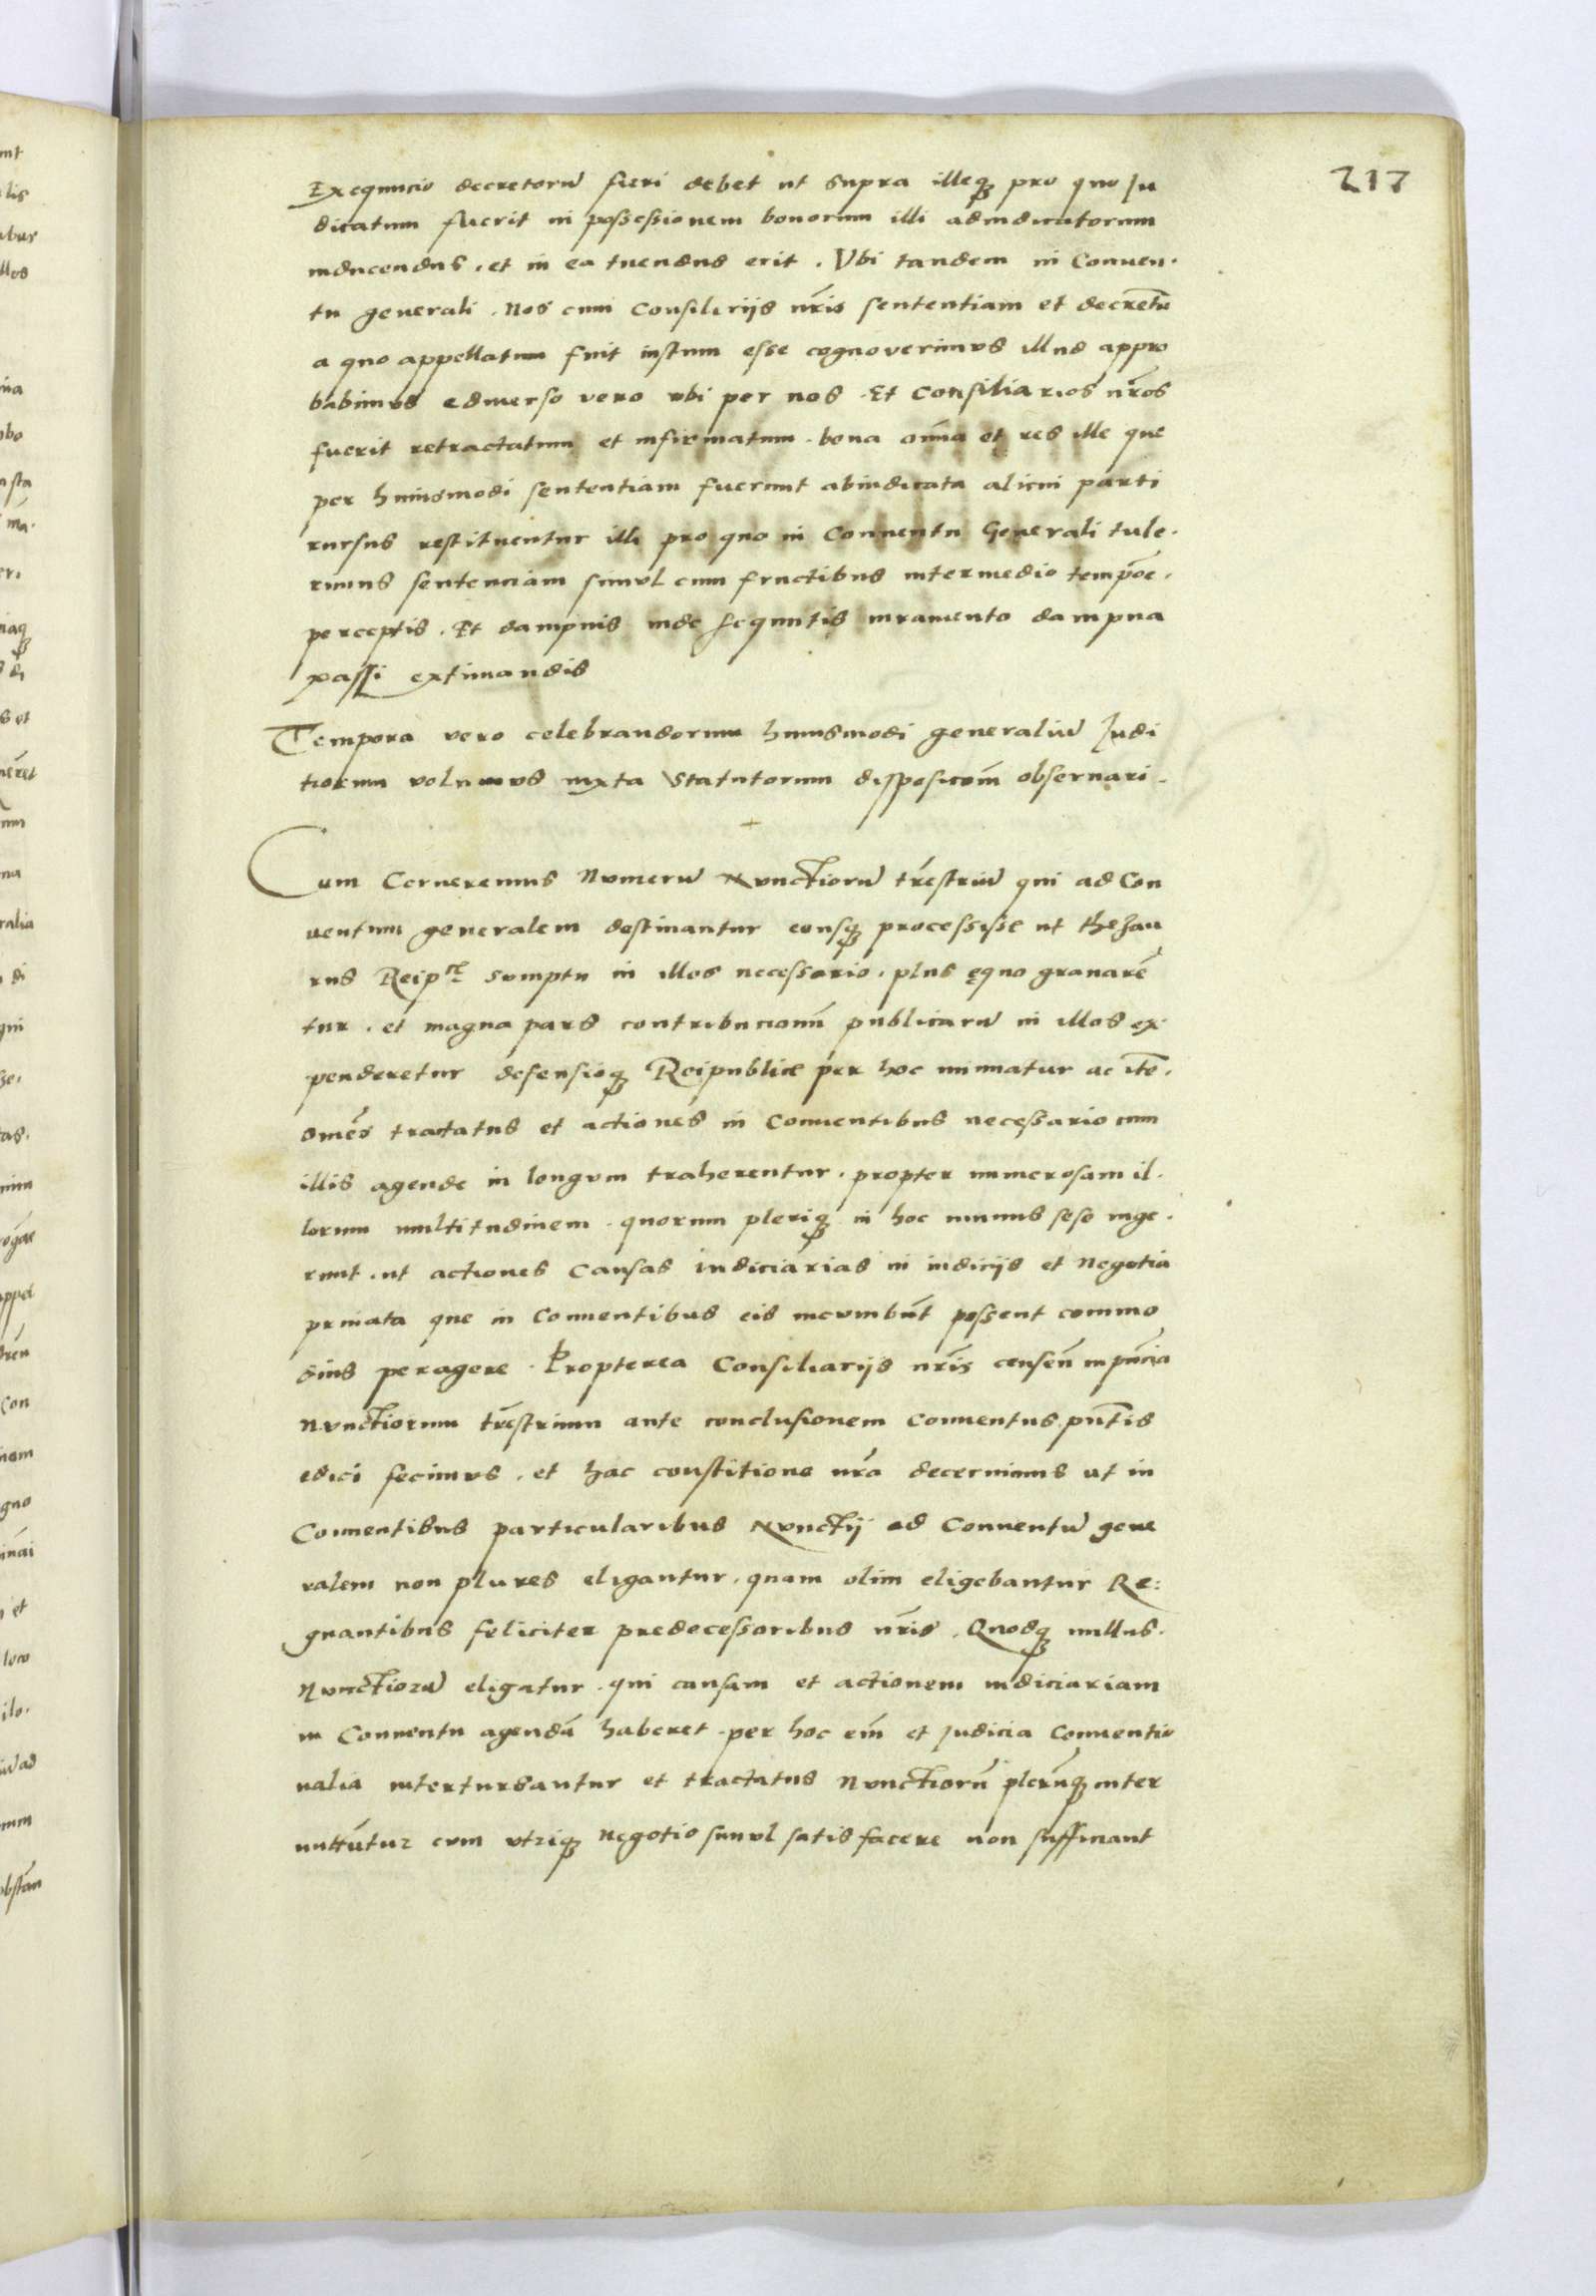 217
Exequucio decretorũ fieri debet ut supra illeq; pro quo Ju
dicatum fuerit in possessionem bonorum illi adiudicatorum
inducendus. et in ea tuendus erit. Vbi tandem in Conuen.
tu generali. Nos cum Consiliarijs nr̃is sententiam et decretũ
a quo appellatum fuit iustum esse cognoverimus illud appro
babimus eduerso vero ubi per nos. Et Consiliarios nr̃os
fuerit retractatum et infirmatum. bona om̃ia et res ille que
per huiusmodi sententiam fuerunt abiudicata alicui parti
rursus restituentur illi pro quo in Conuentu Generali tule.
rimus sentenciam simul cum fructibus intermedio temp̃oe.
perceptis. Et dampnis inde sequutis iuramento dampna
passi extimandis
Tempora vero celebrandorum huiusmodi generaliũ Judi
tiorum volumus iuxta Statutorum dispositõem obseruari.
Cum Cerneremus Numerũ Nunctiorũ tr̃estriũ qui ad Con
uentum generalem destinantur eousq; processisse ut thezau
rus Reip^ce sumptu in illos necessario. plus ęquo grauarẽ
tur. et magna pars contribucionũ publicarũ in illos ex
penderetur defensioq; Reipublice per hoc minuatur ac itẽ.
omẽs tractatus et actiones in Conuentibus necessario cum
illis agende in longum traherentur. propter numerosam il.
lorum multitudinem. quorum pleriq; in hoc munus sese inge.
runt. ut actiones Causas iudiciarias in iudicijs et Negotia
priuata que in Conuentibus eis incumbũt possent commo
dius peragere. Propterea Consiliarijs nr̃is censeñ in pñcia
Nunctiorum tr̃estrium ante conclusionem Conuentus pñtis
edici fecimus. et hac constitione nr̃a decernimus ut in
Conuentibus particularibus Nunctij ad Conuentũ gene
ralem non plures eligantur. quam olim eligebantur Re:
gnantibus feliciter predecessoribus nr̃is. Quodq; nullus.
Nunctiorũ eligatur. qui causam et actionem iudiciariam
in Conuentu agendã haberet. per hoc em̃ et Judicia Conuentio
nalia interturbantur et tractatus Nunctiorũ plerũq; inter
mittũtur cum utriq; negotio simul satis facere non sufficiant